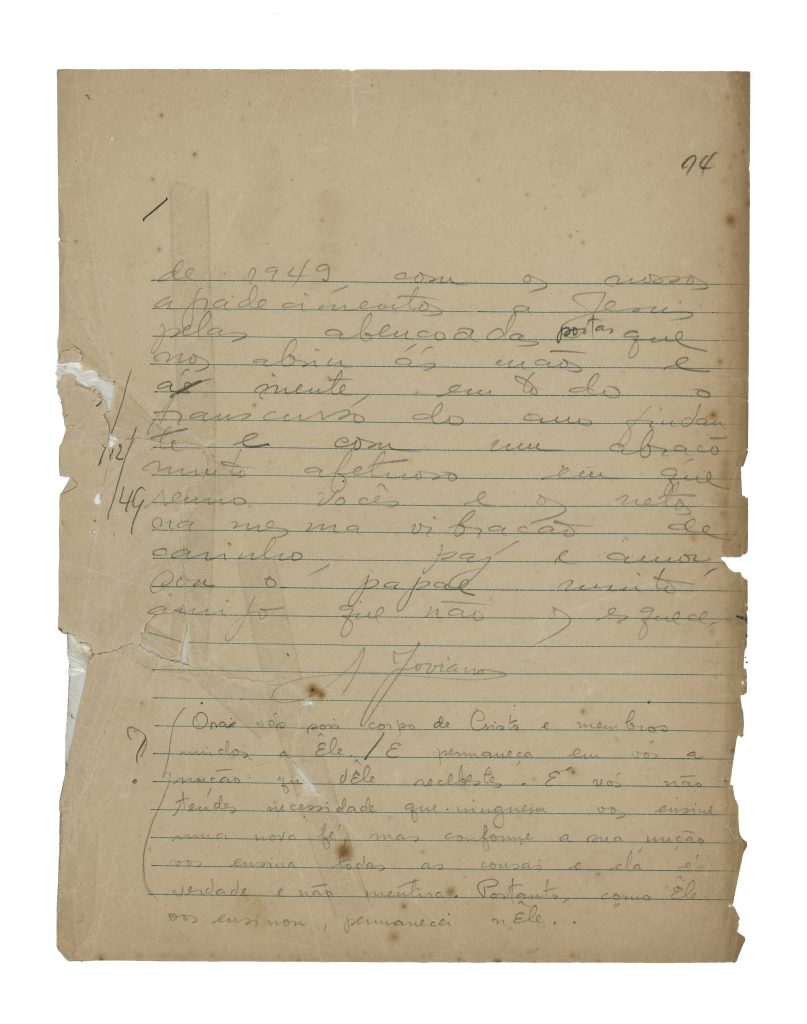 94
de 1949 com os nossos
agradecimentos a Jesus
pelas abençoadas portas que
nos abriu ás mãos e
á mente em todo o
transcurso do ano findan
te e com um abraço
muito afetuoso em que
reuno vocês e os netos
na mesma vibração de
carinho, paz e amor,
sou o papae muito
amigo que não os esquece,
A Joviano
1/12/49
Orae vós sois corpo de Cristo e membros
unidos a Êle. / E permaneça em vós a
unção que dÊle recebestes. E vós não
tendes necessidade que ninguem vos ensine
uma nova fé, mas conforme a sua unção
vos ensina todas as cousas e ela é
verdade e não mentira. Portanto, como Êle
vos ensinou, permanecei nÊle..
?